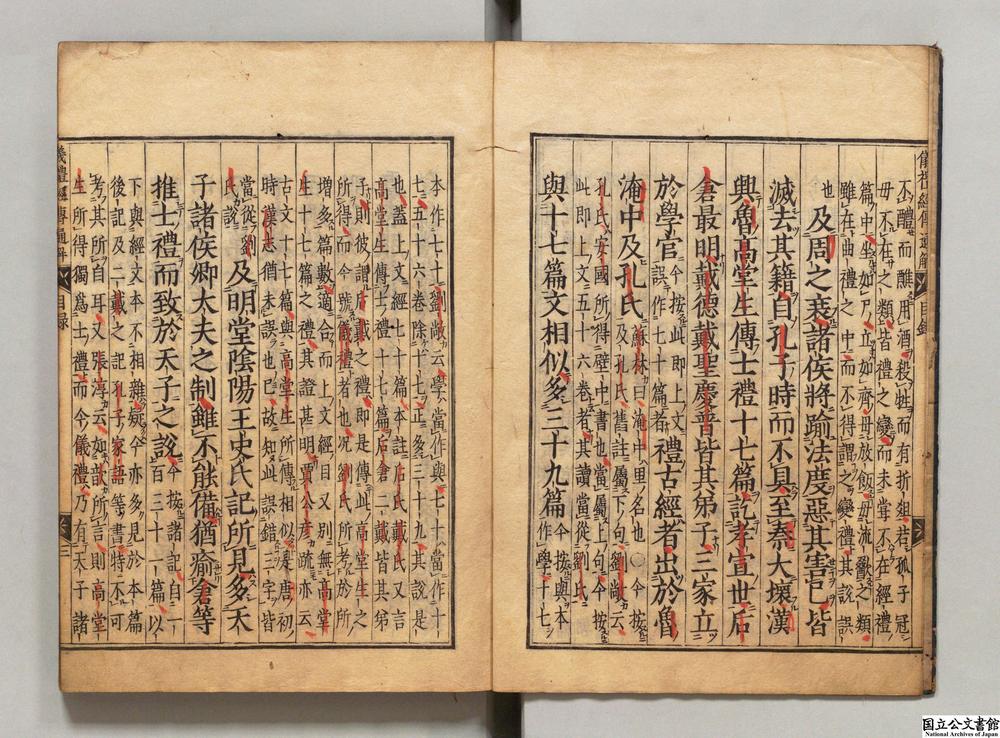 儀禮經傳通解 目錄
不醴而醮用酒殺牲而有折俎若孤子冠
毋不在之類皆禮之變而未嘗不在經禮
篇中坐如尸立如齊毋放飯毋流歠之類
雖在曲禮之中而不得謂之變禮其說誤
也
及周之衰諸侯將踰法度惡其害已皆
滅去其籍自孔子時而不具至秦大壞漢
興魯高堂生傳士禮十七篇訖孝宣世后
倉最明戴德戴聖慶普皆其弟子三家立
於學官今按此即上文七十篇者誤作禮古經者出於魯
淹中及孔氏蘇林曰淹中里名也〇今按及孔氏舊註屬下句劉敞云
孔氏安國所得壁中書也當屬上句今按此即上文五十六卷者其讀當從劉氏
與十七篇文相似多三十九篇今按與本作學十七
本作七十劉敞云學當作與七十當作十
七五十六卷除十七正多三十九其說是
也蓋上文經七十篇本註后氏戴氏又言
高堂生傳士禮十七篇后倉二戴皆其弟
子則彼謂后戴之禮即是傳此高堂生之
所得而今號儀禮者也况劉氏所考於所
增多篇數適合而上文經目又別無高堂
生十七篇之禮其證甚明賈公彥疏亦云
古文十七篇與高堂生所傳相似是唐初
時漢志猶未誤也已故知此誤錯三字皆
當從劉氏說及明堂陰陽王史氏記所見多天
子諸侯卿大夫之制雖不能備猶瘉倉等
推士禮而致於天子之說今按諸記自一百三十一篇以
下與經文本不相雜疑今亦多見於本篇
後記及二戴之記孔子家語等書特不可
考其所自耳又張淳云如歆所言則高堂
生所得獨為士禮而今儀禮乃有天子諸
儀禮經傳通解 目錄 三
国立公文書館
National Archives of Japan